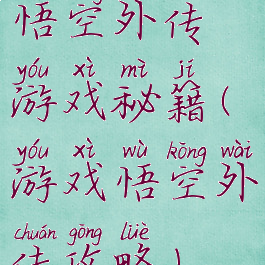 悟空外传
yóu xì mì jí
游戏秘籍(
yóu xì wù kōng wài
游戏悟空外
chuán gōng lüè
传攻略)